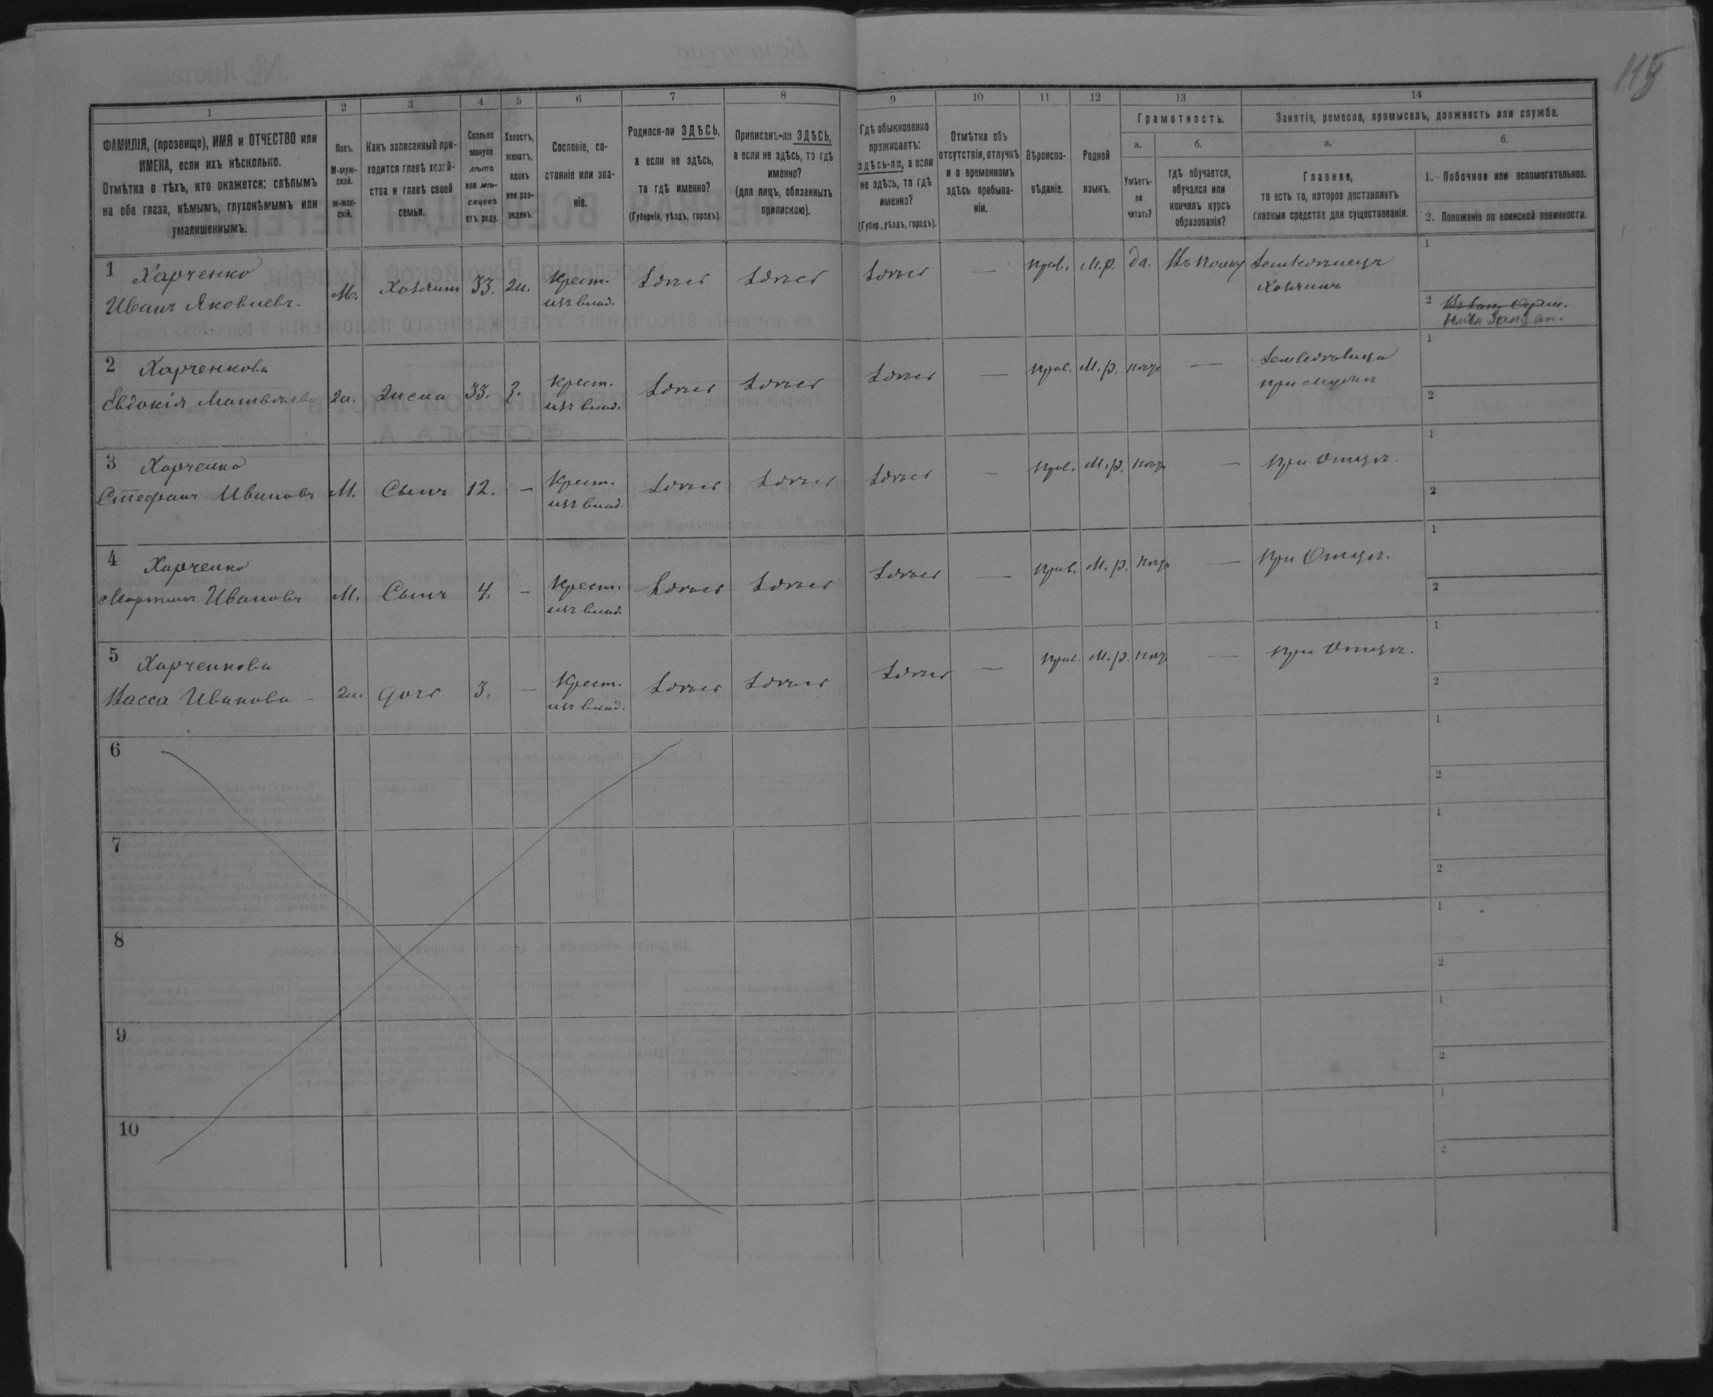 115
1
2
3
4
5
6
7
8
9
10
11
12
13
14
ФАМИЛІЯ, (прозвище), ИМЯ и ОТЧЕСТВО или
ИМЕНА, если ихъ нѣсколько.
Отмѣтка о тѣхъ, кто окажется: слѣпымъ
на оба глаза, нѣмымъ, глухонѣмымъ или
умалишеннымъ.
Полъ.
М-муж-
ской.
ж-жен-
скій.
Какъ записанный при-
ходится главѣ хозяй-
ства и главѣ своей
семьи.
Сколько
минуло
лѣтъ
или мѣ-
сяцевъ
отъ роду.
Холостъ,
женатъ,
вдовъ
или раз-
веденъ.
Сословіе, со-
стояніе или зва-
ніе.
Родился-ли ЗДѢСЬ,
а если не здѣсь,
то гдѣ именно?
(Губернія, уѣздъ, городъ).
Приписанъ-ли ЗДѢСЬ,
а если не здѣсь, то гдѣ
именно?
(для лицъ, обязанныхъ
припискою).
Гдѣ обыкновенно
проживаетъ:
здѣсь-ли, а если
не здѣсь, то гдѣ
именно?
(Губер., уѣздъ, городъ).
Отмѣтка объ
отсутствіи, отлучкѣ
и о временномъ
здѣсь пребыва-
ніи.
Вѣроиспо-
вѣданіе.
Родной
языкъ.
Грамотность.
а.
Умѣетъ-
ли
читать?
б.
гдѣ обучается,
обучался или
кончилъ курсъ
образованія?
Занятія, ремесло, промыселъ, должность или служба.
а.
Главное,
то есть то, которое доставляетъ
главныя средства для существованія.
б.
1. Побочное или вспомогательное.
2. Положеніе по воинской повинности.
1 Харченко
Иванъ Яковлевъ
М. Хозяинъ 33. Ж. Крест.
изъ влад.
Здѣсь Здѣсь Здѣсь — Прав. М.р. да. Въ полку Земледѣлецъ
Хозяинъ
1
2
2 Харченкова
Евдокія Матвѣева
Ж. Жена 33. З. Крест.
изъ влад.
Здѣсь Здѣсь Здѣсь — Прав. М.р. — Земледѣлица
при мужѣ
1
2
3 Харченко
Стефанъ Ивановъ
М. Сынъ 12. — Крест.
изъ влад.
Здѣсь Здѣсь Здѣсь — Прав. М.р. — При Отцѣ.
1
2
4 Харченко
Мартинъ Ивановъ
М. Сынъ 4. — Крест.
изъ влад.
Здѣсь Здѣсь Здѣсь — Прав. М.р. — При Отцѣ.
1
2
5 Харченкова
Васса Иванова
Ж. дочь 3. — Крест.
изъ влад.
Здѣсь Здѣсь Здѣсь — Прав. М.р. — При Отцѣ.
1
2
6
1
2
7
1
2
8
1
2
9
1
2
10
1
2